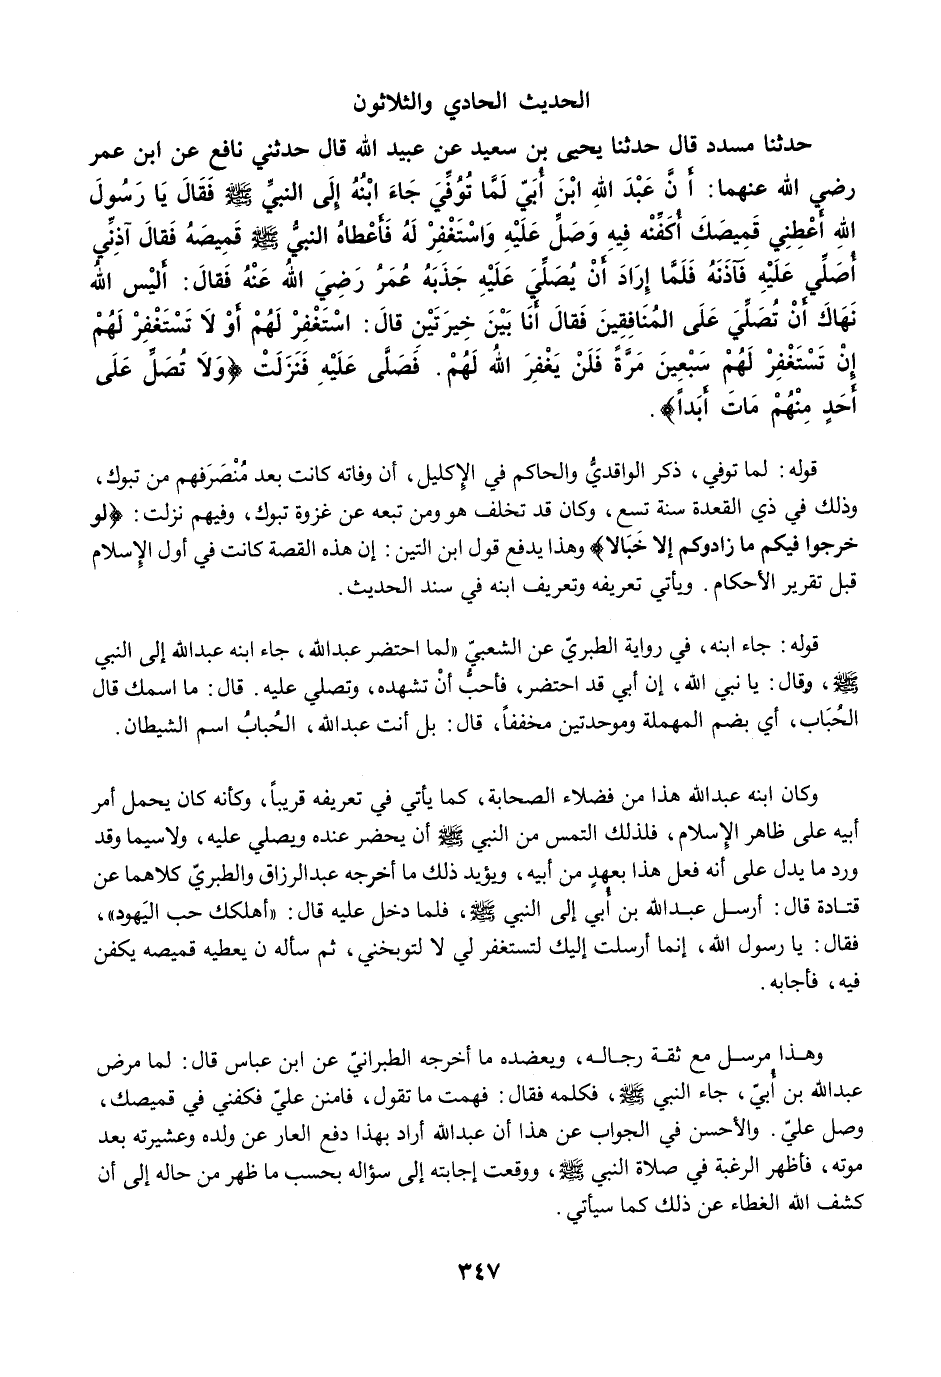 الحديث الحادي والثلاثون
حدثنا مسدد قال حدثنا يحيى بن سعيد عن عبيد الله قال حدثني نافع عن ابن عمر
رضي الله عنهما: أ نَّ عَبْدَ اللهِ ابْنَ أُبَيّ لَمَّا تُوُفِّيَ جَاءَ ابْنُهُ إِلَى النبيِّ ﷺ فَقَالَ يَا رَسُولَ
اللهِ أَعْطِنِي قَمِيصَكَ أُكَفِّنْه فِيهِ وَصَلِّ عَلَيْهِ وَاسْتَغْفِرْ لَهُ فَأَعْطاهُ النبيُّ ﷺ قَمِيصَهُ فَقَالَ آذِنِّي
أُصَلِّي عَلَيْهِ فَآذَنَهُ فَلَمَّا إرَادَ أَنْ يُصَلِّيَ عَلَيْهِ جَذَبَهُ عُمَرُ رَضِيَ اللهُ عَنْهُ فَقَالَ: أَلَيْس اللهُ
نَهَاكَ أَنْ تُصَلِّيَ عَلَى المُنَافِقِينَ فَقَالَ أَنَا بَيْنَ خِيرَتَيْنِ قالَ: اسْتَغْفِرْ لَهُمْ أَوْ لَا تَسْتَغْفِرْ لَهُمْ
إِنْ تَسْتَغْفِرْ لَهُمْ سَبْعِينَ مَرَّةً فَلَنْ يَغْفِرَ اللهُ لَهُمْ. فَصَلَّى عَلَيْهِ فَنَزَلَتْ ﴿وَلَا تُصَلِّ عَلَى
أَحَدٍ مِنْهُمْ مَاتَ أَبَداً﴾.
قوله: لما توفي، ذكر الواقديُّ والحاكم في الإِكليل، أن وفاته كانت بعد مُنْصَرَفهم من تبوك،
وذلك في ذي القعدة سنة تسع، وكان قد تخلف هو ومن تبعه عن غزوة تبوك، وفيهم نزلت: ﴿لو
خرجوا فيكم ما زادوكم إلا خَبَالا﴾ وهذا يدفع قول ابن التين: إن هذه القصة كانت في أول الإِسلام
قبل تقرير الأحكام. ويأتي تعريفه وتعريف ابنه في سند الحديث.
قوله: جاء ابنه، في رواية الطبريّ عن الشعبيّ «لما احتضر عبدالله، جاء ابنه عبدالله إلى النبي
ﷺ، وقال: يا نبي الله، إن أبي قد احتضر، فأحبُّ أنْ تشهده، وتصلي عليه. قال: ما اسمك قال
الحُبَاب، أي بضم المهملة وموحدتين مخففاً، قال: بل أنت عبدالله، الحُبابُ اسم الشيطان.
وكان ابنه عبدالله هذا من فضلاء الصحابة، كما يأتي في تعريفه قريباً، وكأنه كان يحمل أمر
أبيه على ظاهر الإِسلام، فلذلك التمس من النبي ﷺ أن يحضر عنده ويصلي عليه، ولاسيما وقد
ورد ما يدل على أنه فعل هذا بعهدٍ من أبيه، ويؤيد ذلك ما أخرجه عبدالرزاق والطبريّ كلاهما عن
قتادة قال: أرسل عبدالله بن أُبي إلى النبي ﷺ، فلما دخل عليه قال: «أهلكك حب اليَهود»،
فقال: يا رسول الله، إنما أرسلت إليك لتستغفر لي لا لتوبخني، ثم سأله ن يعطيه قميصه يكفن
فيه، فأجابه.
وهذا مرسل مع ثقة رجاله، ويعضده ما أخرجه الطبرانيّ عن ابن عباس قال: لما مرض
عبدالله بن أُبيّ، جاء النبي ﷺ، فكلمه فقال: فهمت ما تقول، فامنن عليّ فكفني في قميصك،
وصل عليّ. والأحسن في الجواب عن هذا أن عبدالله أراد بهذا دفع العار عن ولده وعشيرته بعد
موته، فأظهر الرغبة في صلاة النبي ﷺ، ووقعت إجابته إلى سؤاله بحسب ما ظهر من حاله إلى أن
كشف الله الغطاء عن ذلك كما سيأتي.
٣٤٧